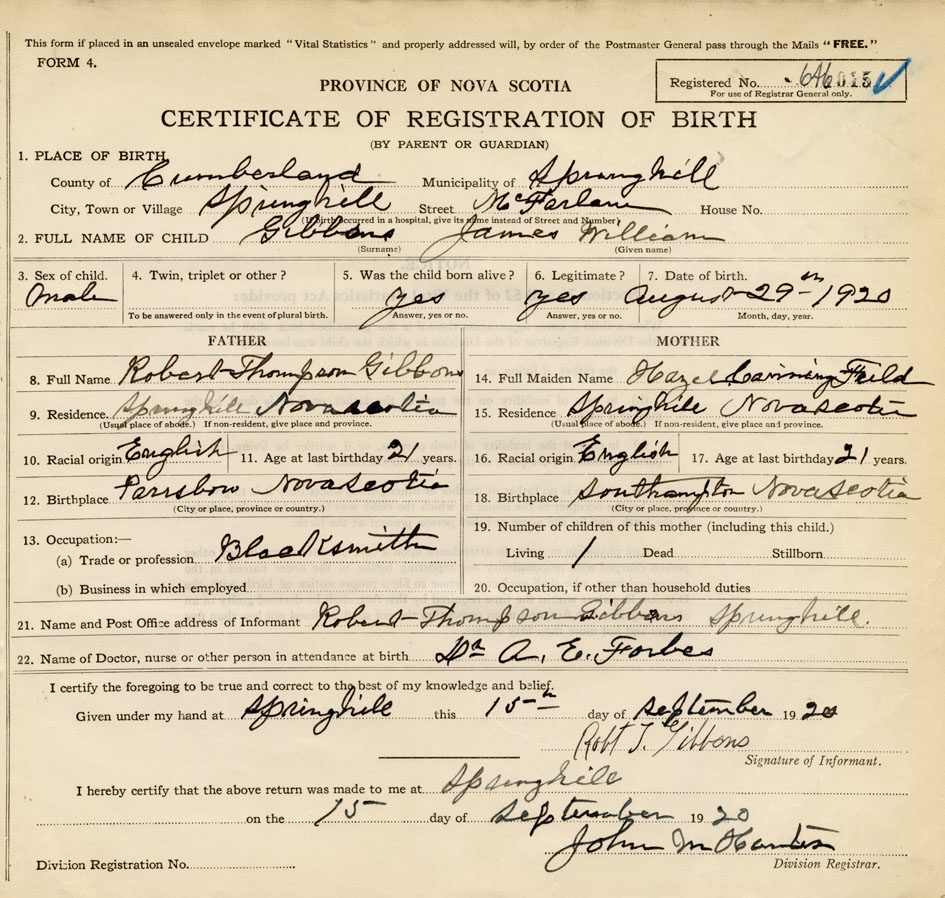 This form if placed in an unsealed envelope marked "Vital Statistics" and properly addressed will, by order of the Postmaster General pass through the Mails "FREE."
FORM 4.
Registered No. 646015
For use of Registrar General only.
PROVINCE OF NOVA SCOTIA
CERTIFICATE OF REGISTRATION OF BIRTH
(BY PARENT OR GUARDIAN)
1. PLACE OF BIRTH
County of Cumberland Municipality of Springhill
City, Town or Village Springhill Street McFarlane House No.
(If birth occurred in a hospital, give its name instead of Street and Number)
2. FULL NAME OF CHILD Gibbons James William
(Surname) (Given name)
3. Sex of child. 4. Twin, triplet or other? 5. Was the child born alive? 6. Legitimate? 7. Date of birth.
Male yes yes August 29th 1920
To be answered only in the event of plural birth. Answer, yes or no. Answer, yes or no. Month, day, year.
FATHER
8. Full Name Robert Thompson Gibbons
9. Residence. Springhill Nova Scotia
(Usual place of abode.) If non-resident, give place and province.
10. Racial origin English 11. Age at last birthday 21 years.
12. Birthplace Parrsboro Nova Scotia
(City or place, province or country.)
13. Occupation:—
(a) Trade or profession Blacksmith
(b) Business in which employed
MOTHER
14. Full Maiden Name Hazel Feild
15. Residence Springhill Nova Scotia
(Usual place of abode.) If non-resident, give place and province.
16. Racial origin English 17. Age at last birthday 21 years.
18. Birthplace Southampton Nova Scotia
(City or place, province or country.)
19. Number of children of this mother (including this child.)
Living 1 Dead Stillborn
20. Occupation, if other than household duties
21. Name and Post Office address of Informant Robert Thompson Gibbons Springhill.
22. Name of Doctor, nurse or other person in attendance at birth Dr A. E. Forbes
I certify the foregoing to be true and correct to the best of my knowledge and belief.
Given under my hand at Springhill this 15th day of September 1920
Robt T. Gibbons
Signature of Informant.
I hereby certify that the above return was made to me at Springhill
on the 15 day of September 1920
John M
Division Registration No. Division Registrar.